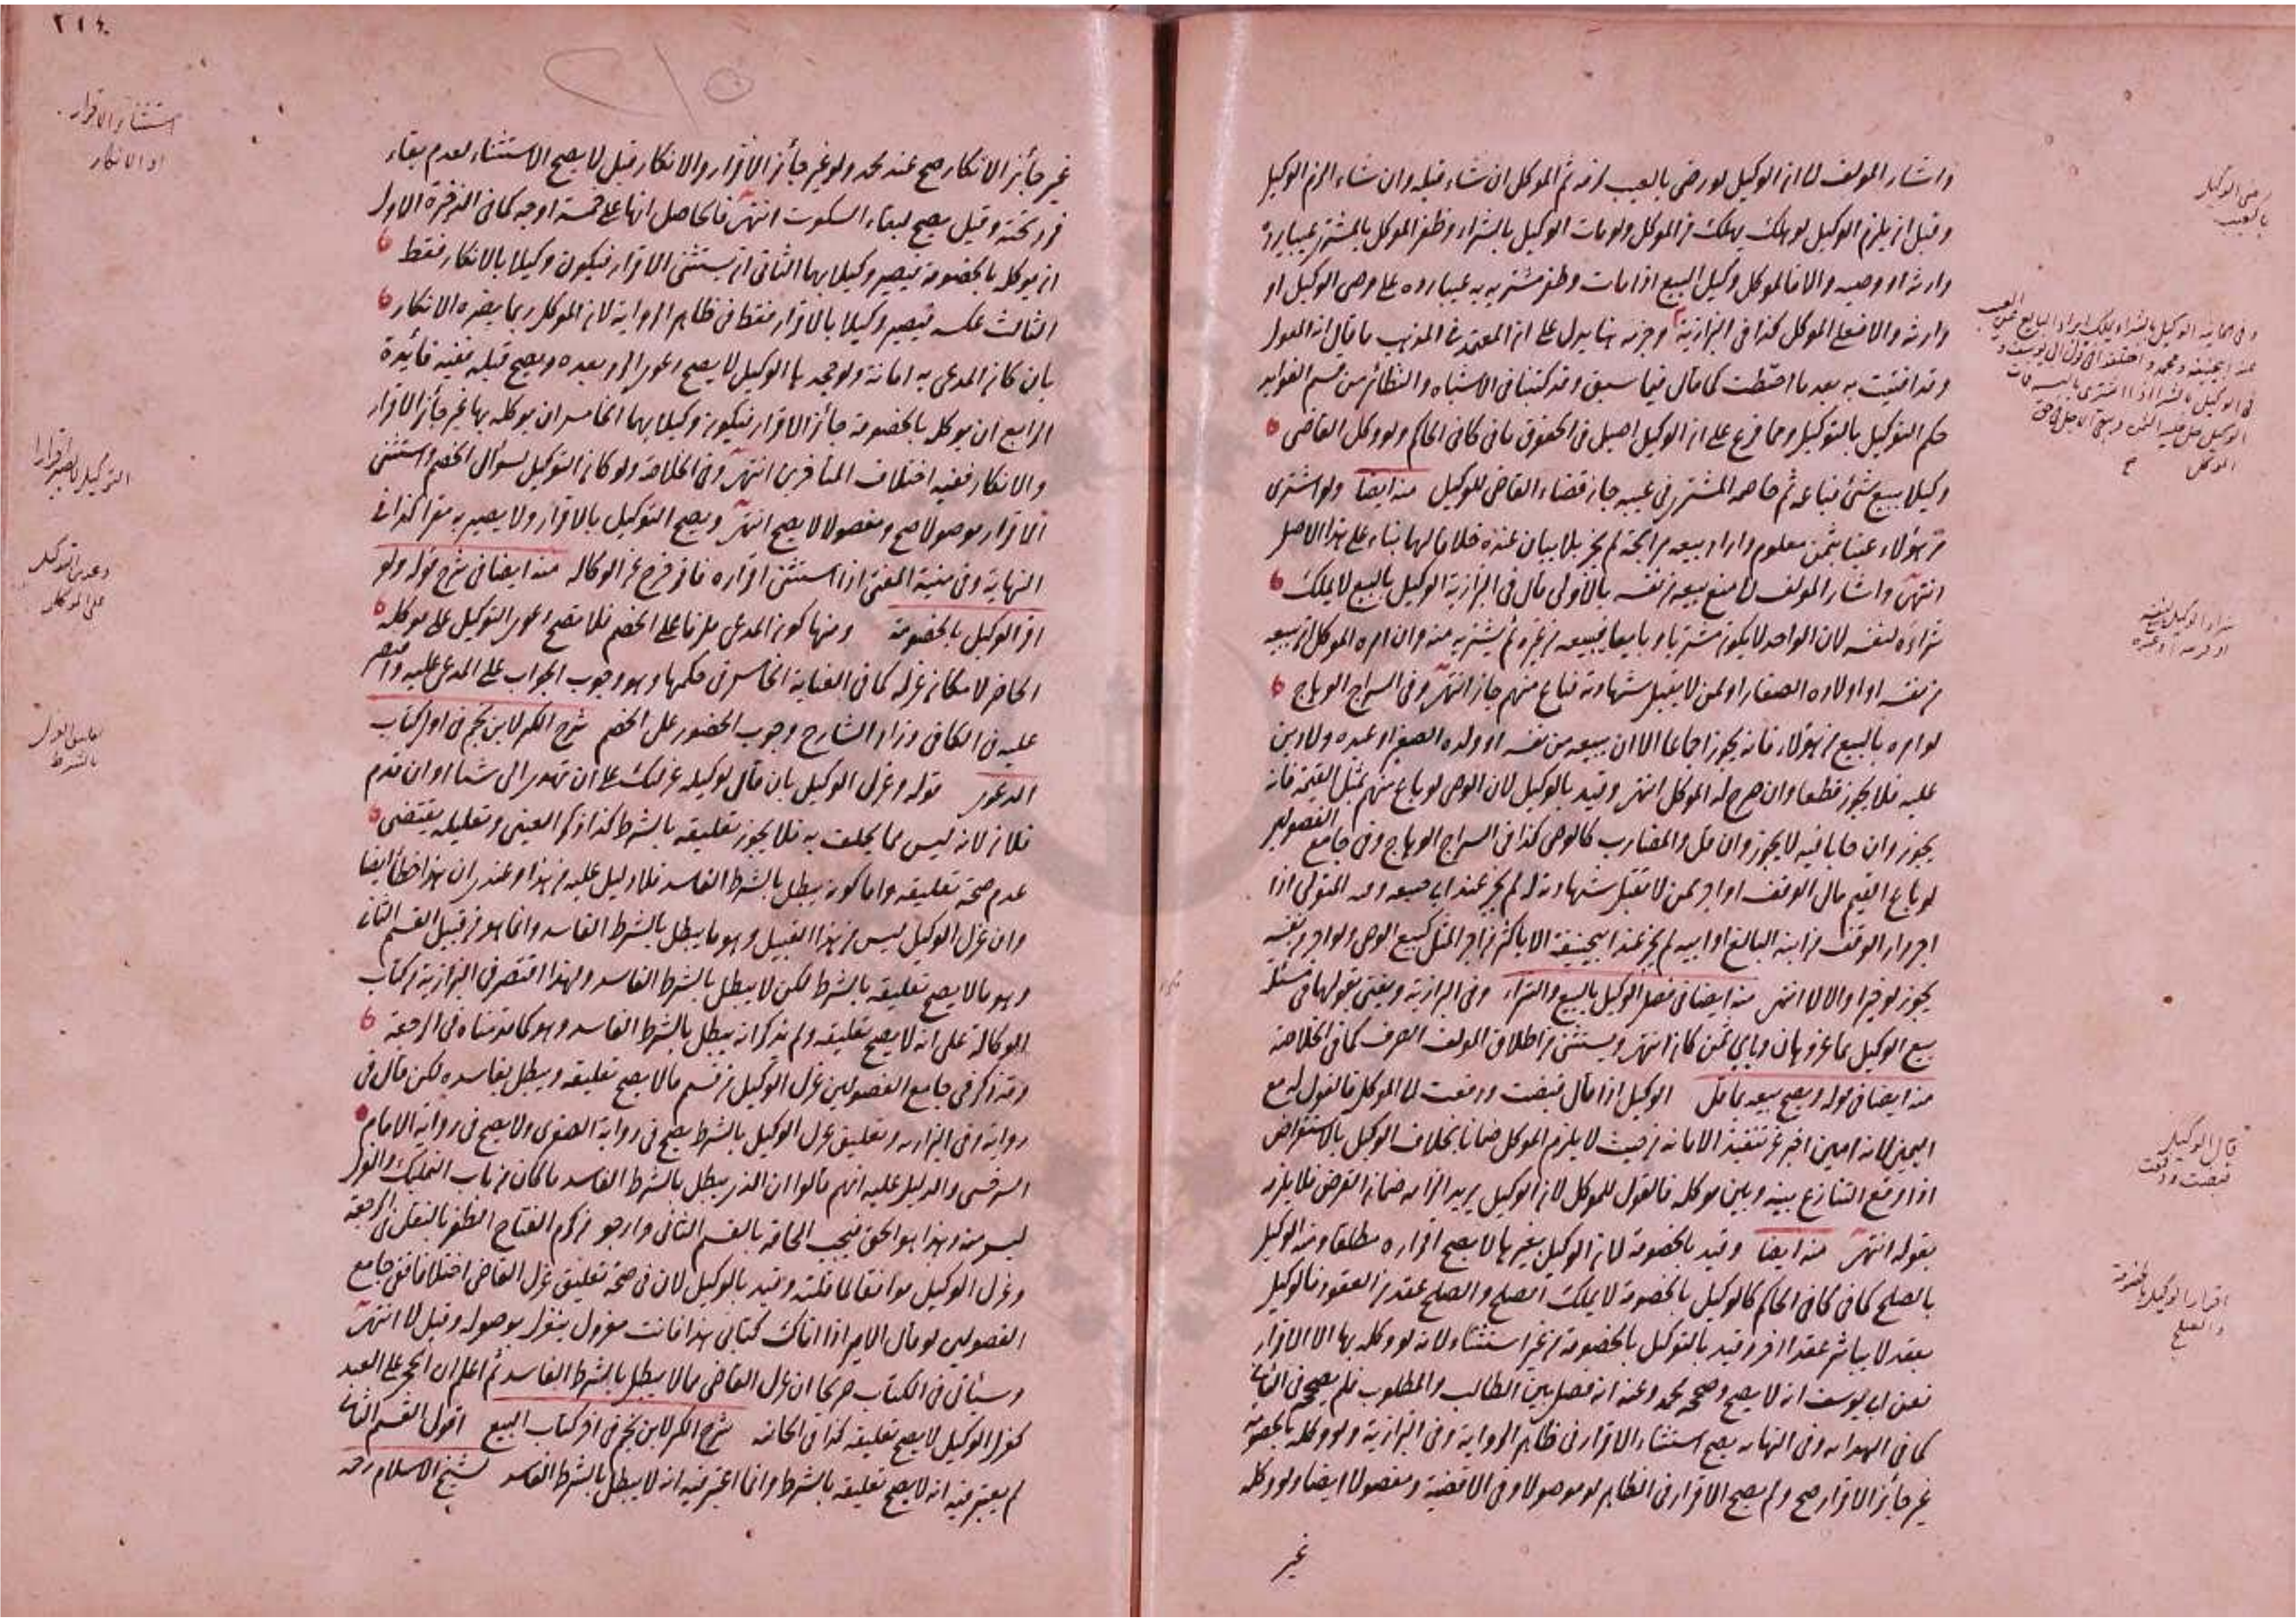 واشار المولف الى ان الوكيل لو رضى بالعيب لزمه ثم الموكل ان شاء قبله وان شاء الزم الوكيل
وقبل ان يلزم الوكيل لو هلك يهلك من الموكل ولو مات الوكيل بالشراء وظفر الموكل بالمشترى عيبا يرده
وارثه او وصيه والا فالموكل وكيل البيع اذا مات وظفر مشتريه به عيبا رده على وصى الوكيل او
وارثه والا فعلى الموكل كذا فى البزازية وجزمه هنا يدل على ان المعتمد فى المذهب ما قال انه المعول
وقد افتيت به بعد ما احتطت كما قال فيما سبق وقد كتبنا فى الاشباه والنظائر من قسم الفوايد
حكم التوكيل بالتوكيل ومما فرع على ان الوكيل اصيل فى الحقوق ما فى كافى الحاكم ولو وكل القاضى
وكيلا ببيع شئ فباعه ثم خاصمه المشترى فى عيبه جاز قضاء القاضى للوكيل منه ايضا ولو اشترى
من هؤلاء عينا بثمن معلوم واراد بيعه مرابحة لم يجز بلا بيان عنده خلافا لهما بناء على هذا الاصل
انتهى واشار المولف الى منع بيعه من نفسه بالاولى قال فى البزازية الوكيل بالبيع لا يملك
شراءه لنفسه لان الواحد لا يكون مشتريا وبايعا فيبيعه من غيره ثم يشتريه منه وان امره الموكل ان يبيعه
من نفسه او اولاده الصغار او ممن لا يقبل شهادته فباع منهم جاز انتهى وفى السراج الوهاج
لو امره بالبيع من هؤلاء فانه يجوز اجماعا الا ان يبيعه من نفسه او ولده الصغير او عبده ولا دين
عليه فلا يجوز قطعا وان صرح له الموكل انتهى وقيد بالوكيل لان الوصى لو باع منهم بمثل القيمة فانه
يجوز وان حابا فيه لا يجوز وان قل والمضارب كالوصى كذا فى السراج الوهاج وفى جامع الفصولين
لو باع القيم مال الوقف او اجر ممن لا تقبل شهادته له لم يجز عند ابى حنيفه وفيه المتولى اذا
اجر دار الوقف من ابنه البالغ او ابيه لم يجز عند ابيحنيفة الا باكثر من اجر المثل كبيع الوصى ولو اجر من نفسه
يجوز لو خيرا والا لا انتهى منه ايضا فى فصل الوكيل بالبيع والشراء وفى البزازية ويفتى بقولهما فى مسئلة
بيع الوكيل بما عز وهان وباى ثمن كان انتهى ويستثنى من اطلاق المولف الصرف كما فى الخلاصة
منه ايضا فى قوله ويصح بيعه بما قل الوكيل اذا قال قبضت ودفعت الى الموكل فالقول له مع
اليمين لانه امين اخبر عن تنفيذ الامانه من حيث لا يلزم الموكل ضمانا بخلاف الوكيل بالاستقراض
اذا وقع التنازع بينه وبين موكله فالقول للموكل لان الوكيل يريد الزامه ضمان القرض فلا يلزمه
بقوله انتهى منه ايضا وقيد بالخصومة لان الوكيل بغيرها لا يصح اقراره مطلقا ومنه الوكيل
بالصلح كما فى كافى الحاكم كالوكيل بالخصومة لا يملك الصلح والصلح عقد من العقود فالوكيل
بعقد لا يباشر عقدا اخر وقيد بالتوكيل بالخصومة من غير استثناء لانه لو وكله بها الا الاقرار
فعن ابى يوسف انه لا يصح وصححه محمد وعنه انه فصل بين الطالب والمطلوب فلم يصححه فى الثانى
كما فى الهدايه وفى النهايه يصح استثناء الاقرار فى ظاهر الرواية وفى البزازية ولو وكله بالخصومة
غير جائز الاقرار صح ولم يصح الاقرار فى الظاهر لو موصولا وفى الاقضية ومفصولا ايضا ولو وكله
غير
رضى الوكيل
بالعيب
شراء الوكيل لنفسه
قال الوكيل
قبضت ودفعت
اقرار الوكيل بالخصومة
والصلح
٢١٤
غير جائز الانكار صح عند محمد ولو غير جائز الاقرار والانكار قيل لا يصح الاستثناء لعدم بقاء
فرد تحته وقيل يصح لبقاء السكوت انتهى فالحاصل انها على خمسة اوجه كما فى الذخيرة الاول
ان يوكله بالخصومة فيصير وكيلا بهما الثانى ان يستثنى الاقرار فيكون وكيلا بالانكار فقط
الثالث عكسه فيصير وكيلا بالاقرار فقط فى ظاهر الرواية لان الموكل ربما يضره الانكار
بان كان المدعى به امانة ولو جحدها الوكيل لا يصح دعوى الرد بعده ويصح قبله ففيه فائدة
الرابع ان يوكله بالخصومة جائز الاقرار فيكون وكيلا بهما الخامس ان يوكله بها غير جائز الاقرار
والانكار ففيه اختلاف المتأخرين انتهى وفى الخلاصة ولو كان التوكيل بسوال الخصم واستثنى
الاقرار موصولا صح ومفصولا لا يصح انتهى ويصح التوكيل بالاقرار ولا يصير به مقرا كذا فى
النهاية وفى منية المفتى اذا استثنى اقراره فاقر خرج عن الوكاله منه ايضا فى شرح قوله ولو
اقر الوكيل بالخصومة ومنها كون المدعى ملزما على الخصم فلا تصح دعوى التوكيل على موكله
الحاضر لامكان عزله كما فى العناية الخامس فى حكمها وهو وجوب الجواب على المدعى عليه واقتصر
عليه فى الكافى وزاد الشارح وجوب الحضور على الخصم شرح الكنز لابن نجيم فى اول كتاب
الدعوى قوله وعزل الوكيل بان قال لوكيله عزلتك على ان تهدى الى شيئا او ان قدم
فلان لانه ليس مما يحلف به فلا يجوز تعليقه بالشرط كذا ذكر العينى وتعليله يقتضى
عدم صحة تعليقه واما كونه يبطل بالشرط الفاسد فلا دليل عليه من هذا وعندى ان هذا خطأ ايضا
وان عزل الوكيل ليس من هذا القبيل وهو ما يبطل بالشرط الفاسد وانما هو من قبيل القسم الثانى
وهو ما لا يصح تعليقه بالشرط لكن لا يبطل بالشرط الفاسد ولهذا اقتصر فى البزازية من كتاب
الوكالة على انه لا يصح تعليقه ولم يذكر انه يبطل بالشرط الفاسد وهو كما قدمناه فى الرجعة
وقد ذكر فى جامع الفصولين عزل الوكيل من قسم ما لا يصح تعليقه ويبطل بفاسده لكن قال فى
رواية وفى البزازيه وتعليق عزل الوكيل بالشرط يصح فى رواية الصغرى ولا يصح فى رواية الامام
السرخسى والدليل عليه انهم قالوا ان الذى يبطل بالشرط الفاسد ما كان من باب التمليك والعزل
ليس منه وهذا هو الحق فيجب الحاقه بالقسم الثانى وارجو من كرم الفتاح الظفر بالنقل فى الرجعة
وعزل الوكيل موافقا لما قلته وقيد بالوكيل لان فى صحة تعليق عزل القاضى اختلافا ففى جامع
الفصولين لو قال الامير اذا اتاك كتابى هذا فانت معزول ينعزل بوصوله وقيل لا انتهى
وسيأتى فى الكتاب صريحا ان عزل القاضى مما لا يبطل بالشرط الفاسد ثم اعلم ان الحجر على العبد
كعزل الوكيل لا يصح تعليقه كذا فى الخانيه شرح الكنز لابن نجيم فى اخر كتاب البيع اقول القسم الثانى
لم يعتبر فيه انه لا يصح تعليقه بالشرط وانما اعتبر فيه انه لا يبطل بالشرط الفاسد لشيخ الاسلام رحمه
استثناء الاقرار
او الانكار
دعوى التوكيل
على الموكل
تعليق العزل
بالشرط